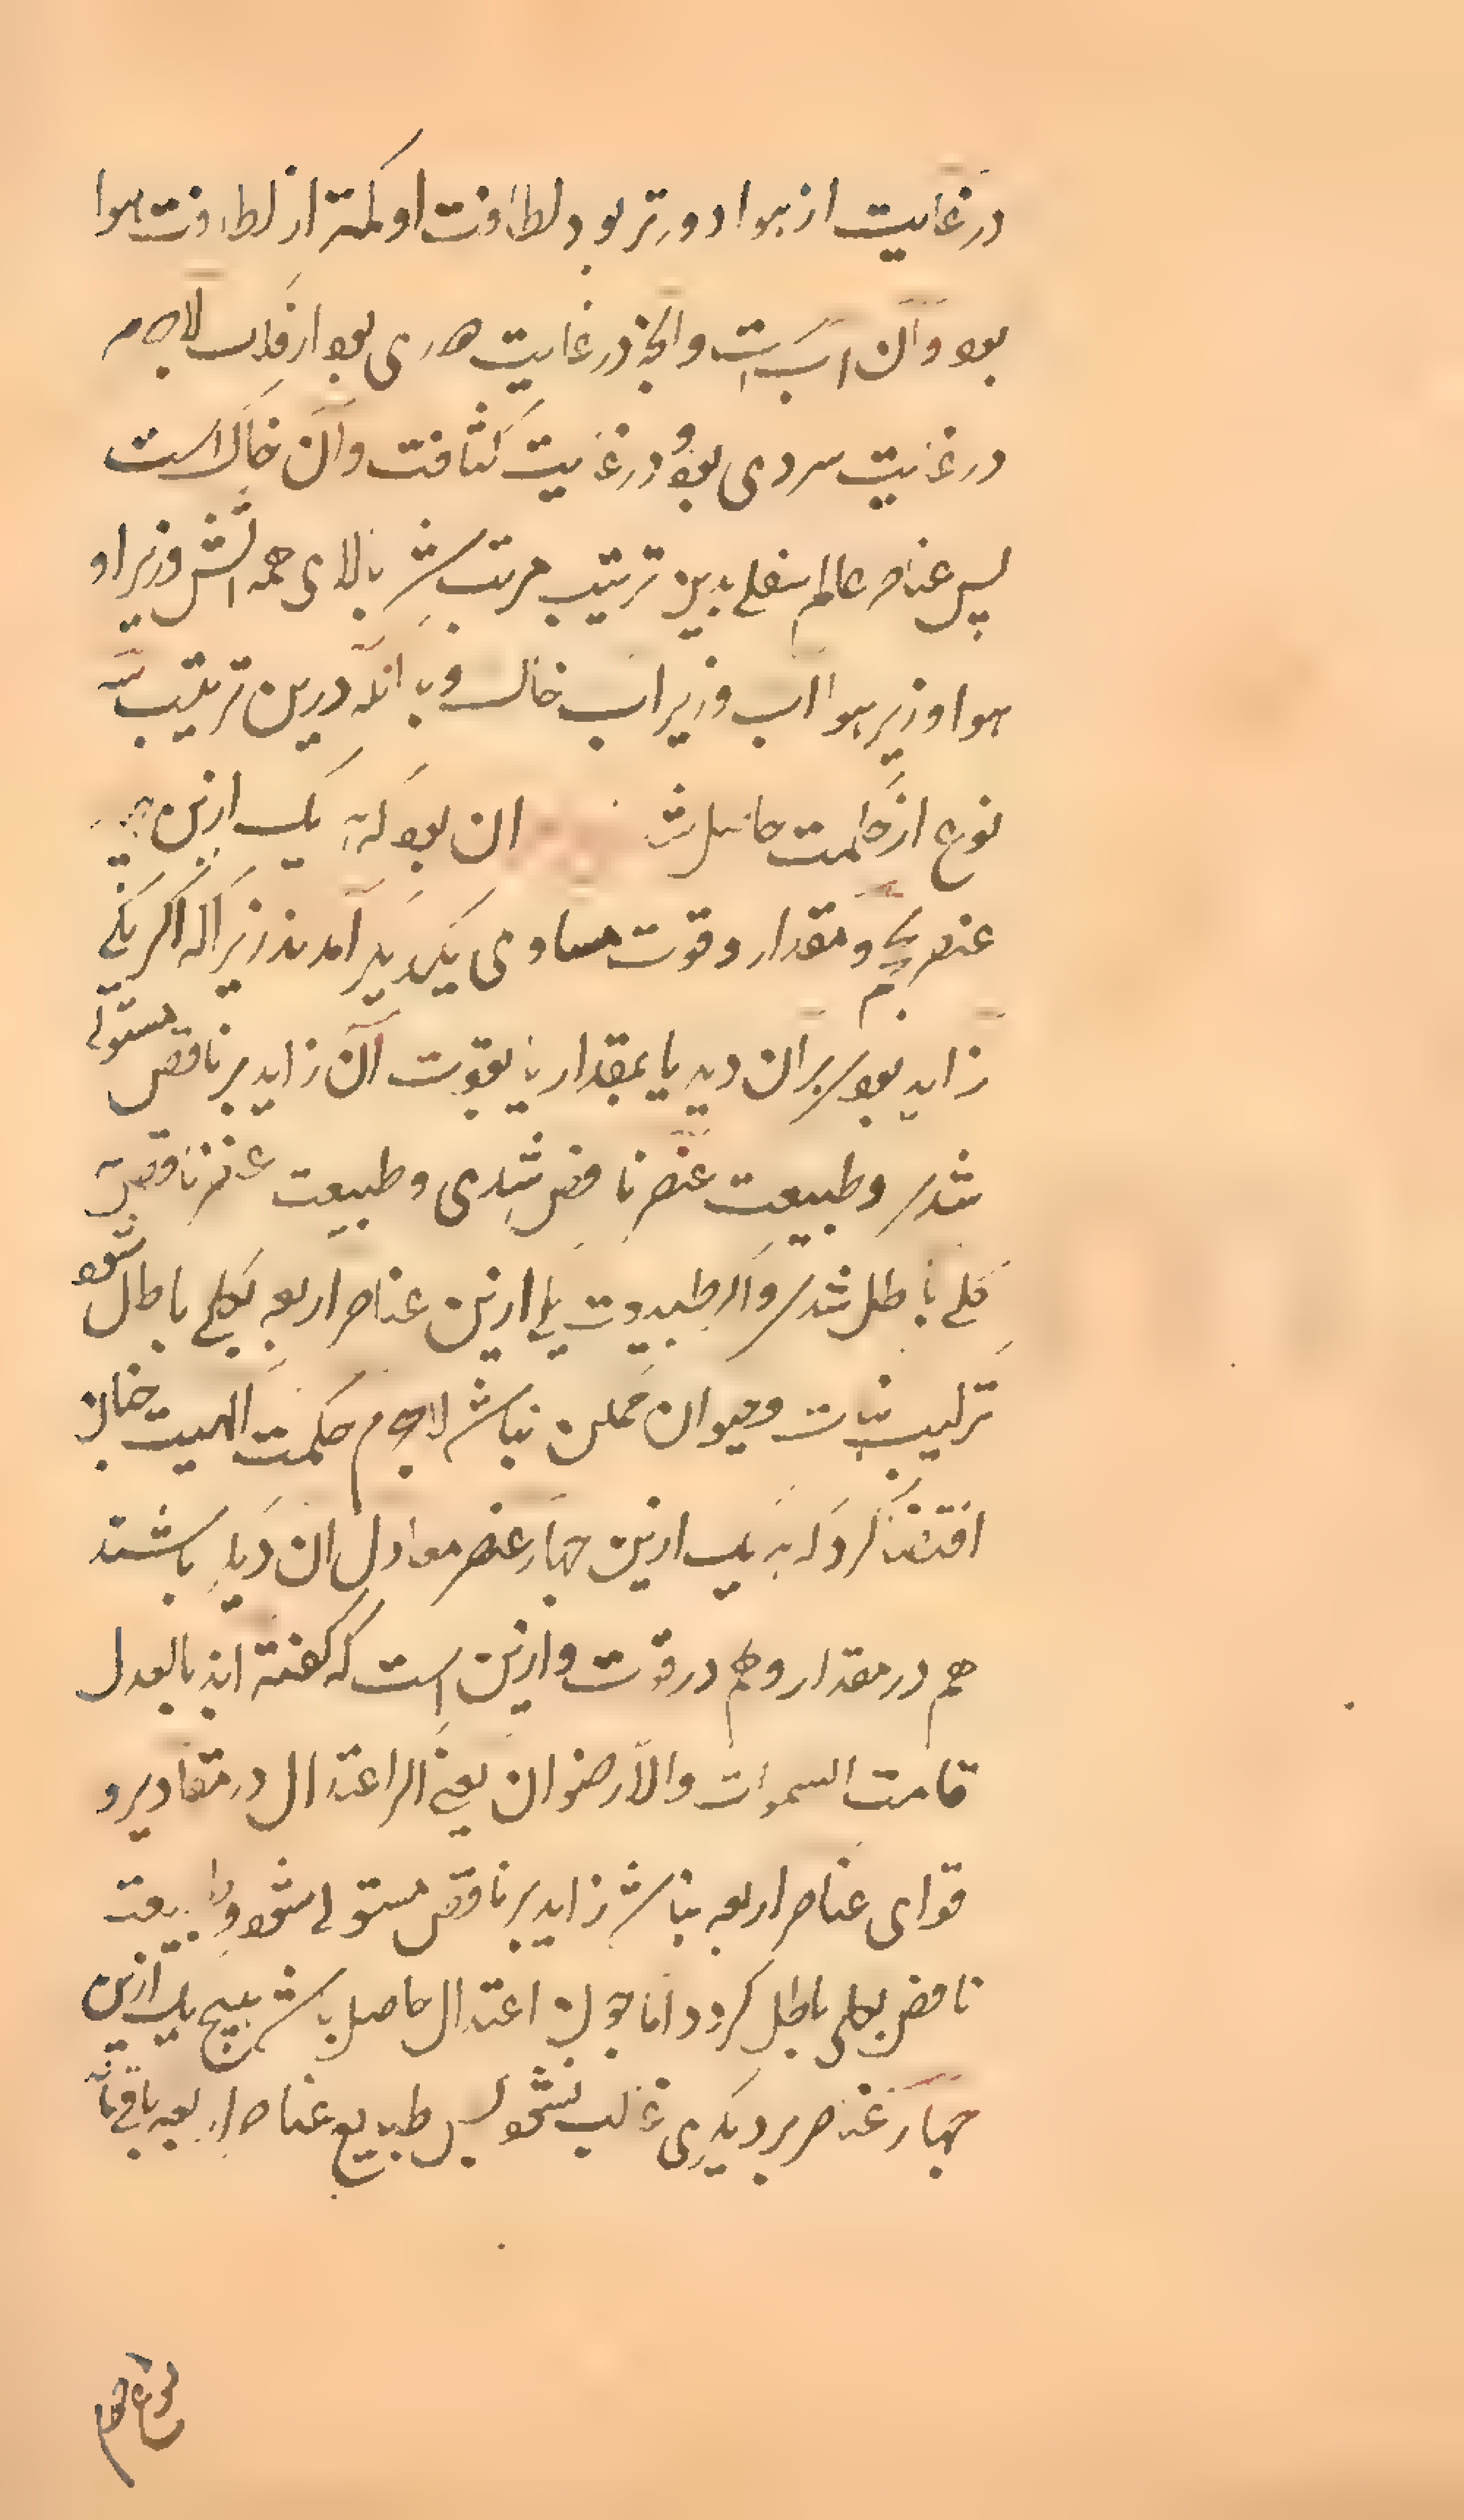 در غایت از هوا دورتر بود لطافت او کمتر از لطافت هوا
بود و آن آب است و آنچه در غایت دوری بود از فلک لاجرم
در غایت سردی بود و در غایت کثافت و آن خاک است
پس عناصر عالم سفلی بدین ترتیب مرتب شد بالای همه آتش و زیر او
هوا و زیر هوا آب و زیر آب خاک و بدانکه درین ترتیب سه
نوع از حکمت حاصل شد ان بود که یک ازین
عنصر بحجم و مقدار و قوت مساوی یکدیگر آمدند زیرا که اگر یکی
زاید بودی بر آن دیگر یا بمقدار یا بقوت آن زاید بر ناقص مستولی
شدی و طبیعت عنصر ناقص شدی و طبیعت عنصر ناقص
کلی باطل شدی و اگر طبیعت یکی ازین عناصر اربعه بکلی باطل شود
ترکیب نبات و حیوان ممکن نباشد لاجرم حکمت الهیت چنان
اقتضا کرد که هر یک ازین چهار عنصر معادل آن دیگر باشند
هم در مقدار و هم در قوت و ازین است که گفته اند بالعدل
قامت السموات والارضوان یعنی اگر اعتدال در مقادیر و
قوای عناصر اربعه نباشد زاید بر ناقص مستولی شود و طبیعت
ناقص بکلی باطل گردد اما چون اعتدال حاصل باشد هیچ یک ازین
چهار عناصر بر دیگری غالب نشود پس طبایع عناصر اربعه باقی ماند
نوع دوم